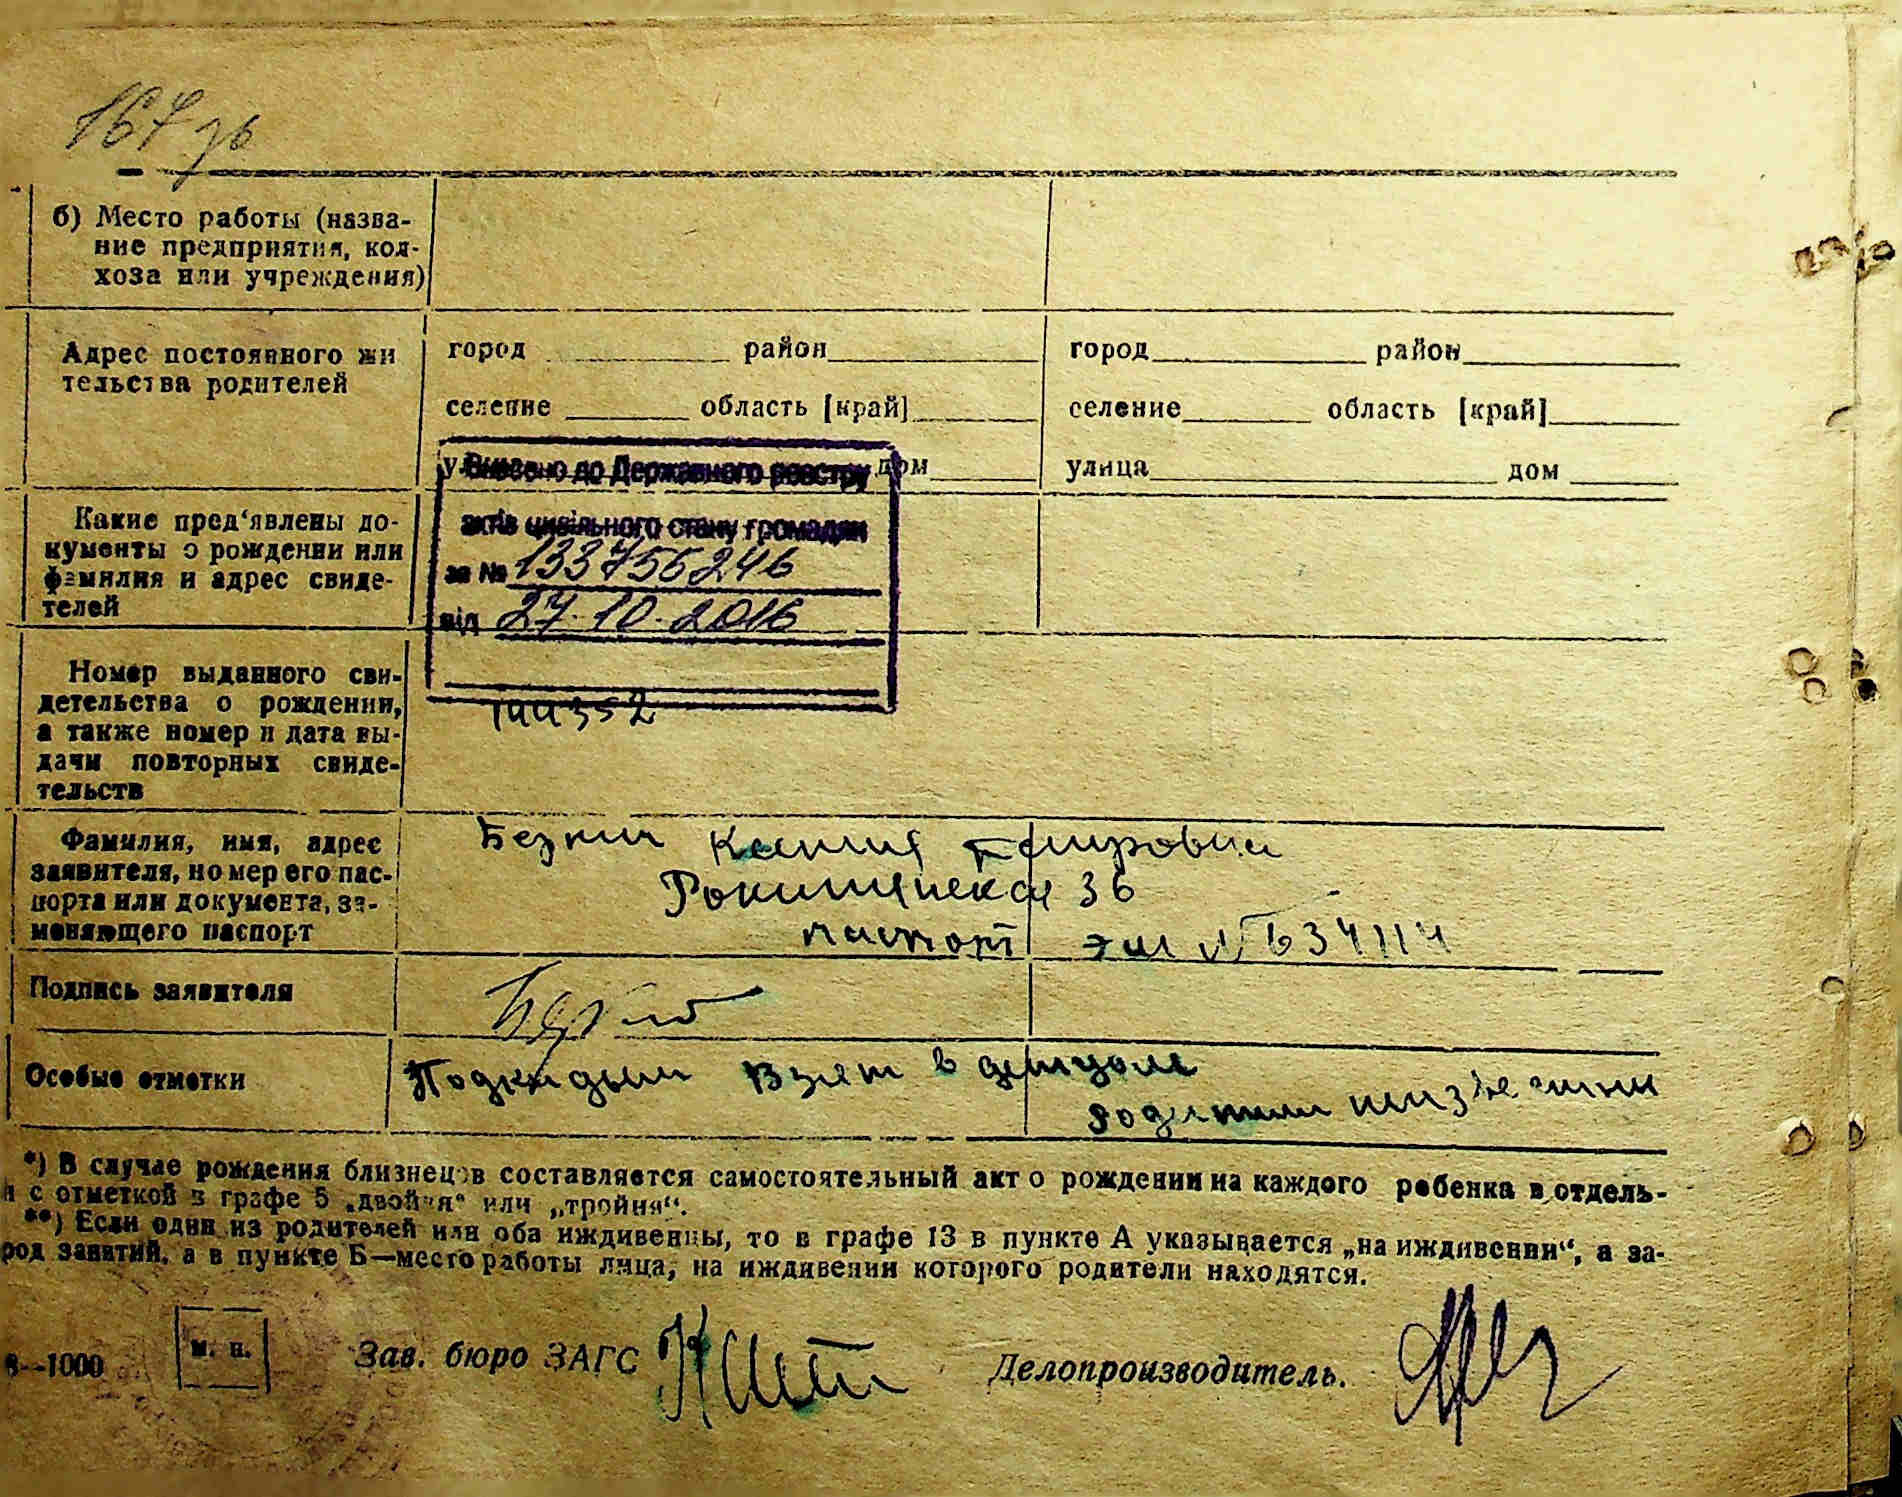 167 зв
б) Место работы (назва-
ние предприятия, кол-
хоза или учреждения)
Адрес постоянного жи
тельства родителей
город район
селение область [край]
улица дом
город район
селение область [край]
улица дом
Внесено до Державного реєстру
актів цивільного стану громадян
за № 133756246
від 27.10.2016
Какие пред‘явлены до-
кументы о рождении или
фамилия и адрес свиде-
телей
Номер выданного сви-
детельства о рождении,
а также номер и дата вы-
дачи повторных свиде-
тельств
144352
Фамилия, имя, адрес
заявителя, номер его пас-
порта или документа, за-
меняющего паспорт
36
паспорт № 634114
Подпись заявителя
Особые отметки
Подкидыш взят в детдом
родители неизвестны
*) В случае рождения близнецов составляется самостоятельный акт о рождении на каждого ребенка в отдель-
и с отметкой в графе 5 „двойня“ или „тройня“.
**) Если один из родителей или оба иждивенцы, то в графе 13 в пункте А указывается „на иждивении“, а за-
род занятий, а в пункте Б—место работы лица, на иждивении которого родители находятся.
8--1000
м. п.
Зав. бюро ЗАГС
Делопроизводитель.